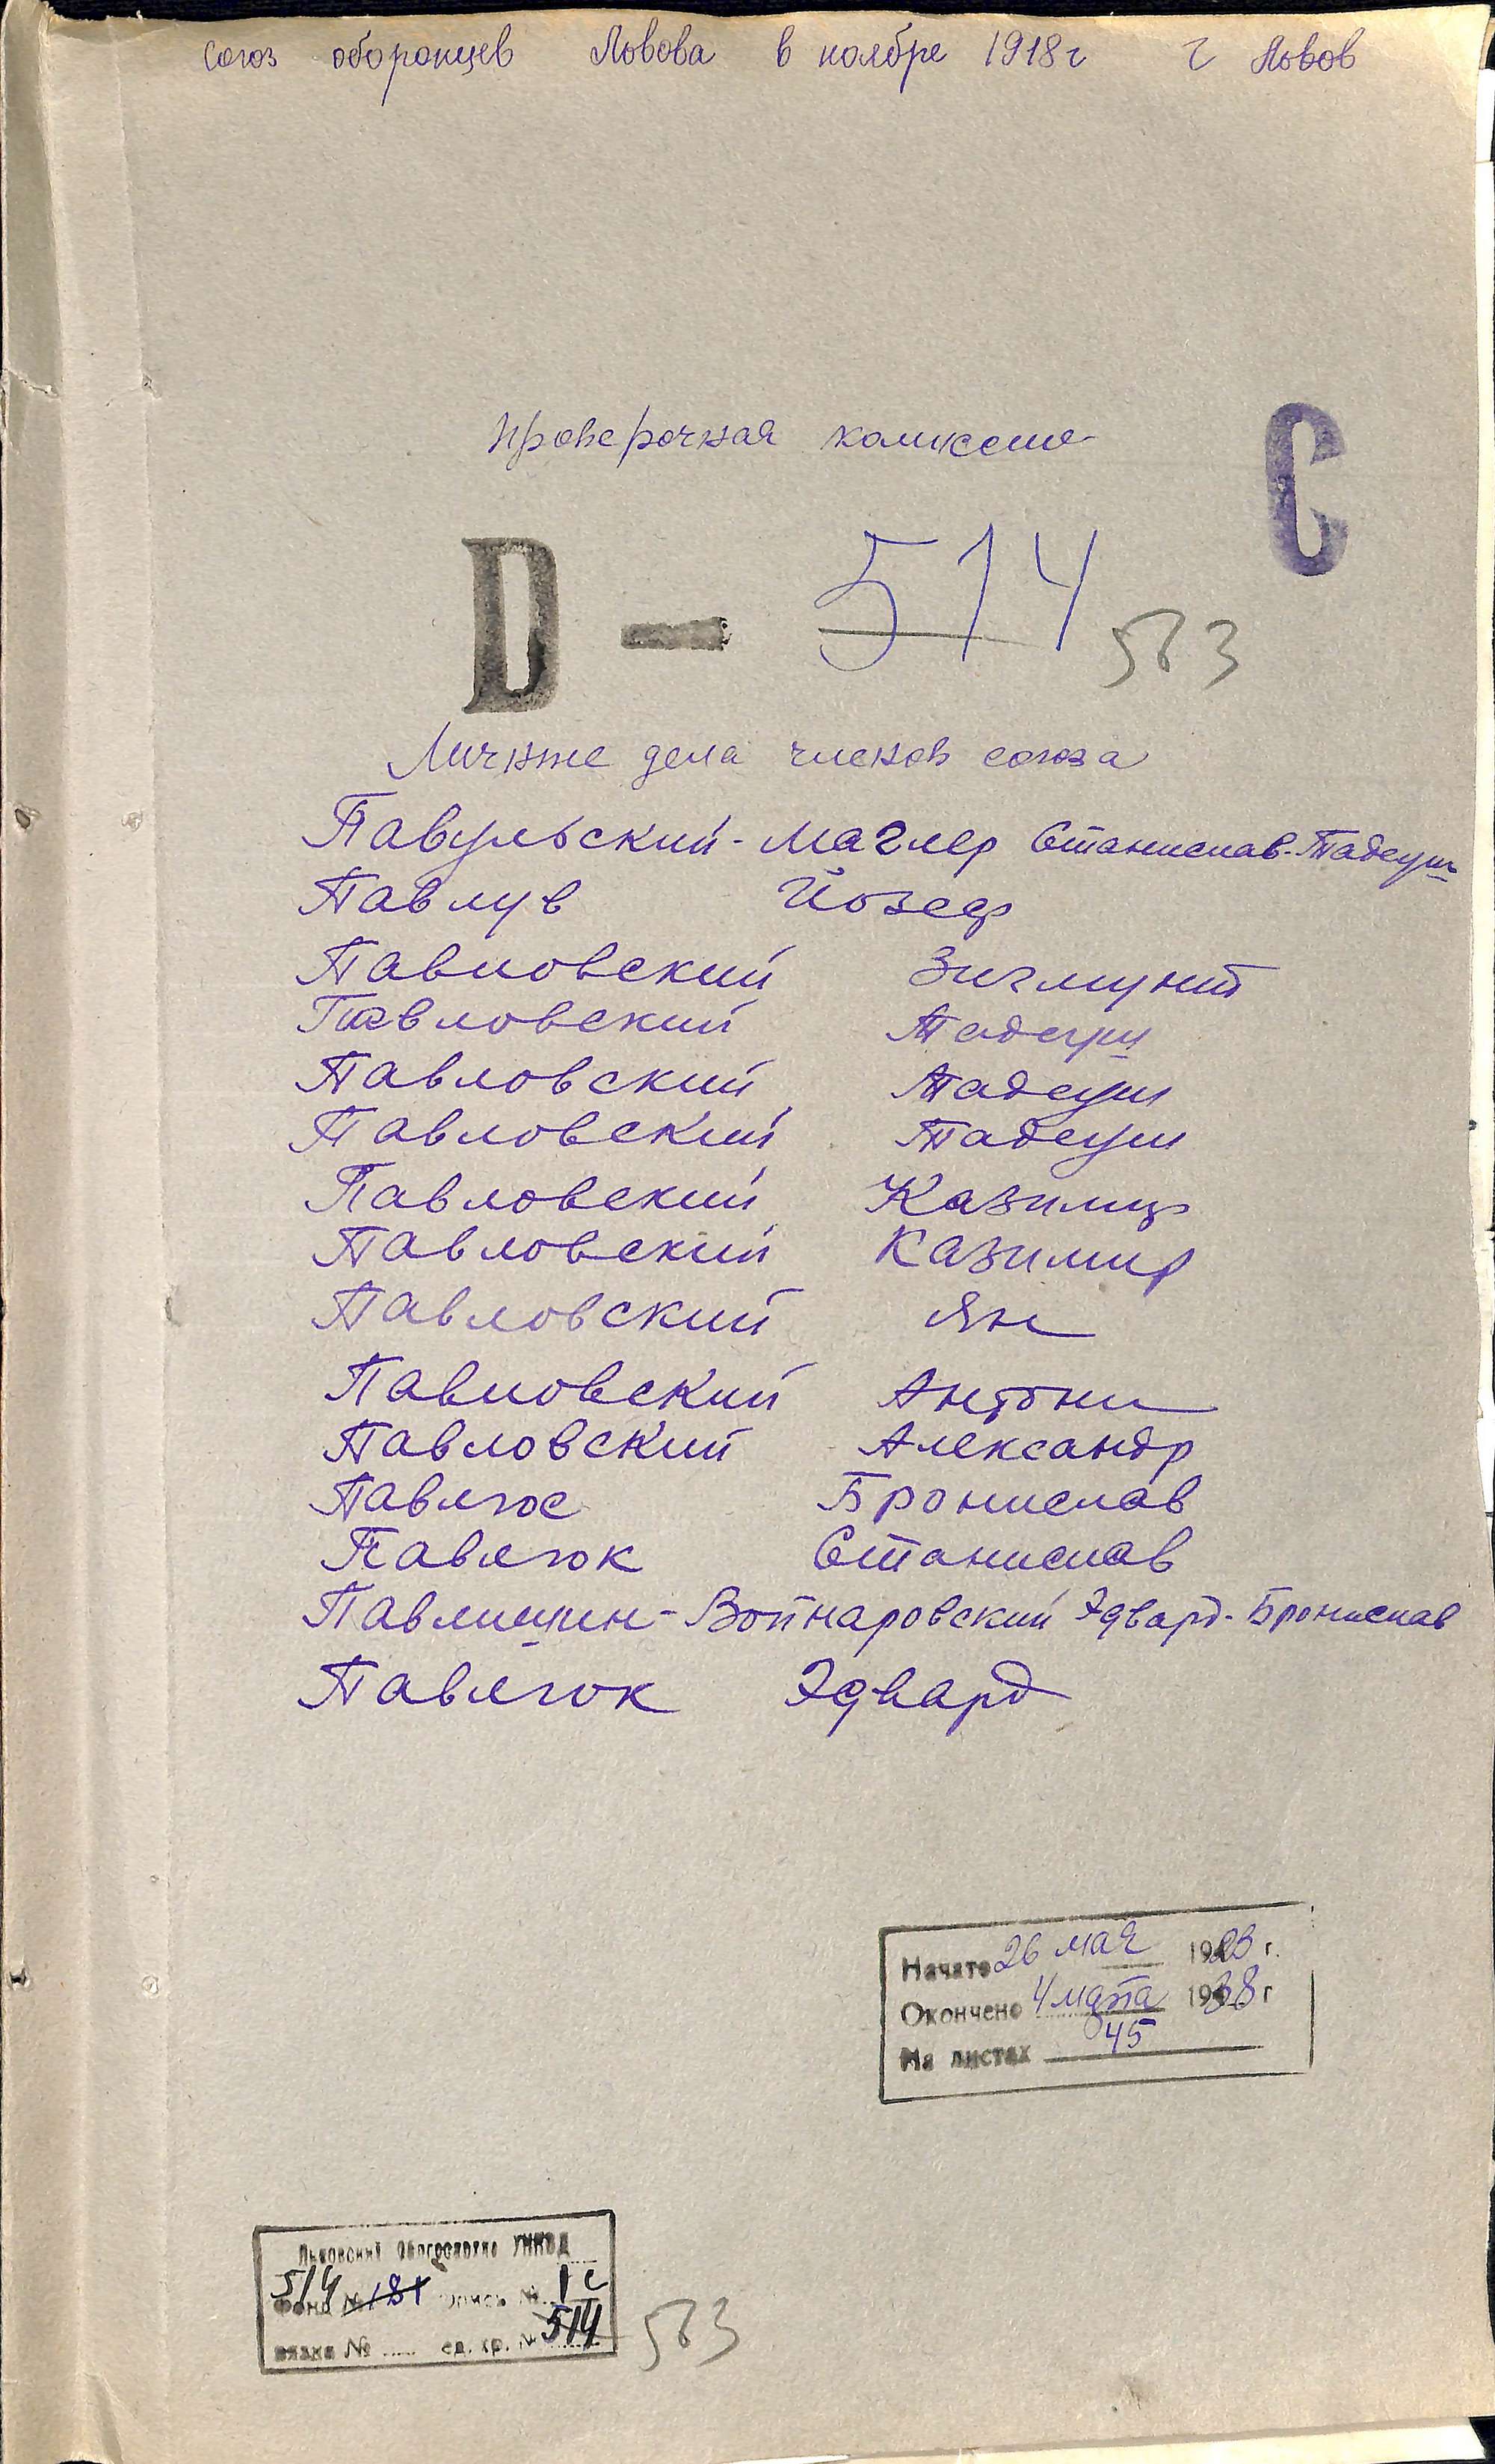 Союз оборонцев Львова в ноябре 1918г г Львов
Проверочная комиссия
С
D — 514
563
Личные дела членов союза
Павульский-Маглер Станислав-Тадеуш
Павлув Йозеф
Павловский Зигмунт
Павловский Тадеуш
Павловский Тадеуш
Павловский Тадеуш
Павловский Казимир
Павловский Казимир
Павловский Ян
Павловский Антони
Павловский Александр
Павлюс Бронислав
Павлюк Станислав
Павлищин-Войнаровский Эдвард-Бронислав
Павлюк Эдвард
Начато 26 мая 1923 г.
Окончено 4 марта 1938 г
На листах 45
Львовский Облгосархив УНКВД
514 1 с
Фонд № 181 Опись №
вязка № ед. хр. № 514
563